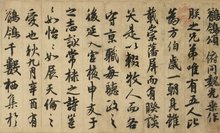 鶺鴒頌 俯同魏光乘作
朕之兄弟唯有五人比
為方伯歲一朝見雖
載崇藩屏而有睽談
笑是以輟牧人而各
守京職每聽政之
後延入宮掖申友于
之志詠棠棣之詩邕
邕如怡怡如展天倫之
愛也秋九月辛酉有鶺
鴒千數栖集於